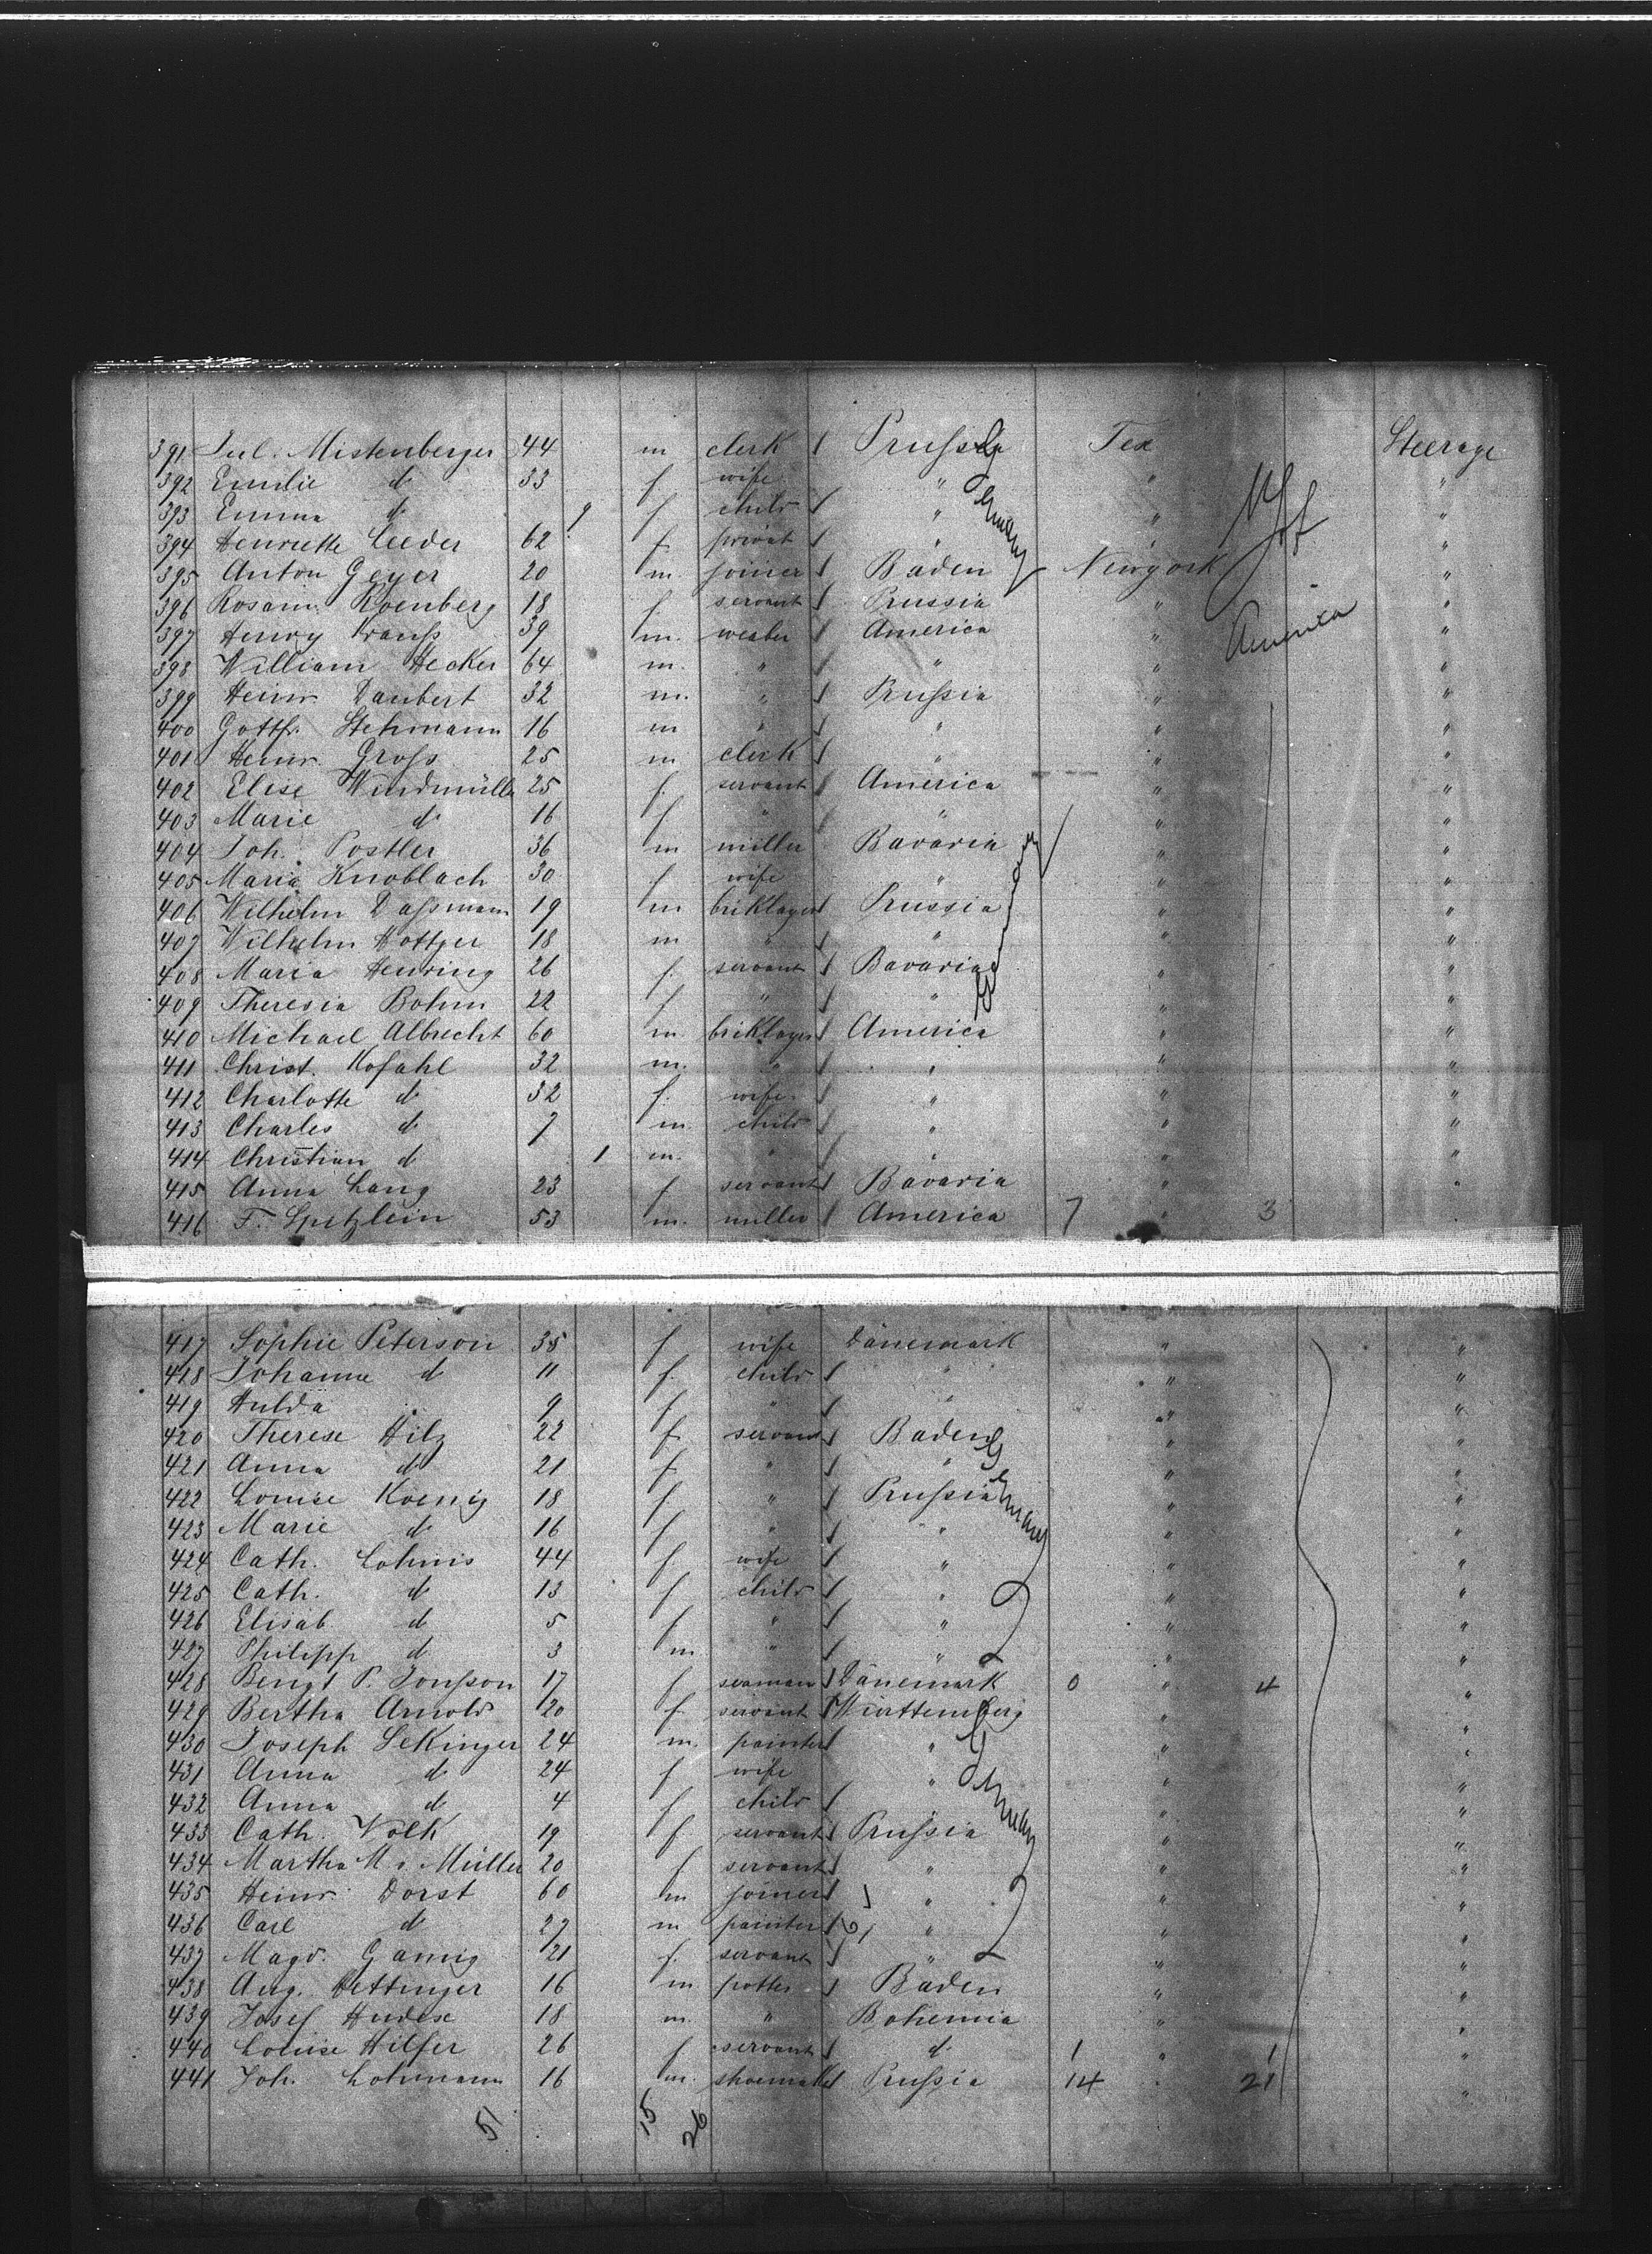 391 Jul. Mistenberger 44 m clerk / Prussia Tex Steerage
392 Emilie d 33 f wife " " "
393 Emma d 9 f child / " " "
394 Henriette Leeder 62 f privat / " " "
395 Anton Geyer 20 m. joiner / Baden Newyork "
396 Rosam. Roenberg 18 f. servant / Prussia " "
397 Henry Krauss 39 m. weaber / America " "
398 William Hecker 64 m. " / " " "
399 Heinr. Daubert 32 m. " / Prussia " "
400 Gottfr. Stehmann 16 m " / " " "
401 Heinr. Gross 25 m clerk / " " "
402 Elise Windmülle 25 f. servant / America " "
403 Marie d 16 f " / " " "
404 Joh. Postler 36 m miller Bavaria " "
405 Maria Knoblach 30 f wife " " "
406 Wilhelm Dassmann 19 m briklayer / Prussia " "
407 Wilhelm Hottger 18 m " / " " "
408 Maria Henring 26 f. servant / Bavaria " "
409 Theresia Bohm 22 f " / " " "
410 Michael Albrecht 60 m. briklayer / America " "
411 Christ. Kofahl 32 m. " / " " "
412 Charlotte d 32 f. wife / " " "
413 Charles d 7 m child / " " "
414 Christian d 1 m. " / " " "
415 Anna Lang 23 f servant / Bavaria " "
416 F. Spitzlein 53 m. miller / America 7 " 3
Germany
America
Germany
417 Sophie Peterson 35 f wife Dänemark " "
418 Johanne d 11 f. child / " " "
419 Hulda " 9 f " / " " "
420 Therese Hilz 22 f servant / Baden " "
421 Anna d 21 f " / " " "
422 Louise Koenig 18 f " / Prussia " "
423 Marie d 16 f " / " " "
424 Cath. Lohmis 44 f. wife / " " "
425 Cath. d 13 f child / " " "
426 Elisab d 5 f " / " " "
427 Philipp d 3 m. " / " " "
428 Bengt P. Jonsson 17 f seaman / Dänemark 0 " 4 "
429 Bertha Arnold 20 f. servant / Württemberg " "
430 Joseph Sekinger 24 m. painter / " " "
431 Anna d 24 f wife " " "
432 Anna d 4 f child / " " "
433 Cath. Volk 19 f servant / Prussia " "
434 Martha M. Müller 20 f servant / " " "
435 Heinr. Dorst 60 m joiner / " " "
436 Carl d 27 m painter / " " "
437 Magd. Gamig 21 f. servant / " " "
438 Aug. Bettinger 16 m potter / Baden " "
439 Josef Hudex 18 m. " Bohemia " "
440 Louise Hilfer 26 f servant / d 1 " 1 "
441 Joh. Lohmann 16 m. shoemak / Prussia 14 21 "
Germany
Germany
51 15 26